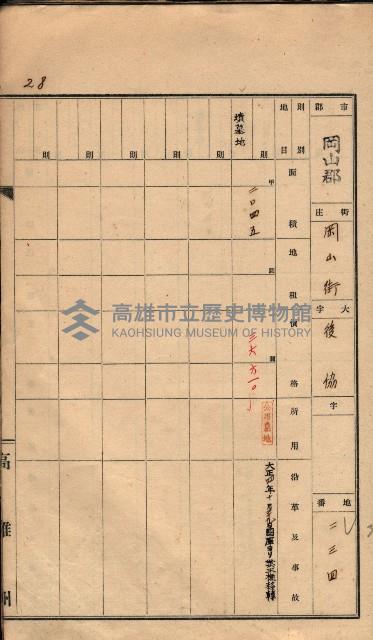 28
市郡 岡山郡
街庄 岡山街
大字 後協
字
地番 二三四
則別 地目 面積 地租 價格 所用 沿革及事故
墳墓地
則 則 則 則 則 則
甲 二〇四五
圓 三六六一〇
公共墓地
大正四年十月
國庫ヨリ
移轉
高雄州
高雄市立歷史博物館
KAOHSIUNG MUSEUM OF HISTORY